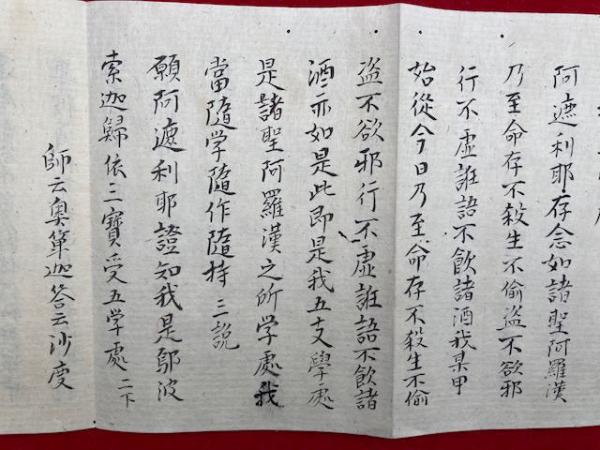 阿遮利耶存念如諸聖阿羅漢
乃至命存不殺生不偷盗不欲邪
行不虚誑語不飲諸酒我某甲
始從今日乃至命存不殺生不偷
盗不欲邪行不虚誑語不飲諸
酒亦如是此即是我五支學處
是諸聖阿羅漢之所学處我
當隨学隨作隨持 三説
願阿遮利耶證知我是鄔波
索迦歸依三寶受五学處 二下
師云奥箄迦答云沙度